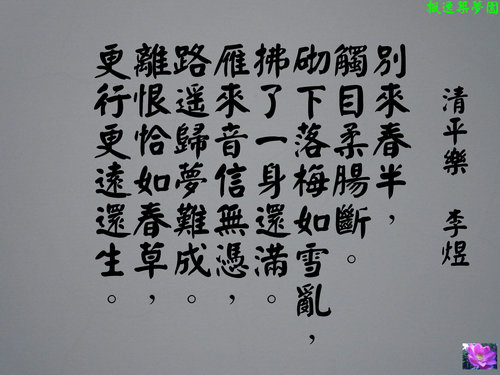 飄逸築夢園
清平樂 李煜
別來春半，
觸目柔腸斷。
砌下落梅如雪亂，
拂了一身還滿。
雁來音信無憑，
路遥歸夢難成。
離恨恰如春草，
更行更遠還生。